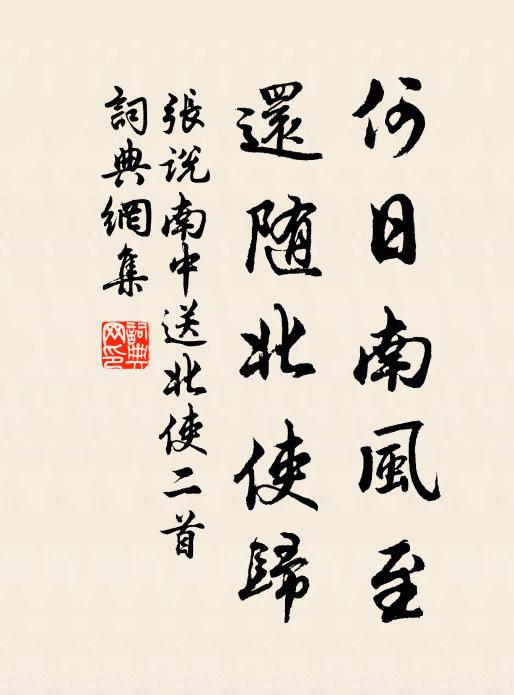 何日南風至
還随北使歸
張说南中送北使二首
詞典網集
詞典网印